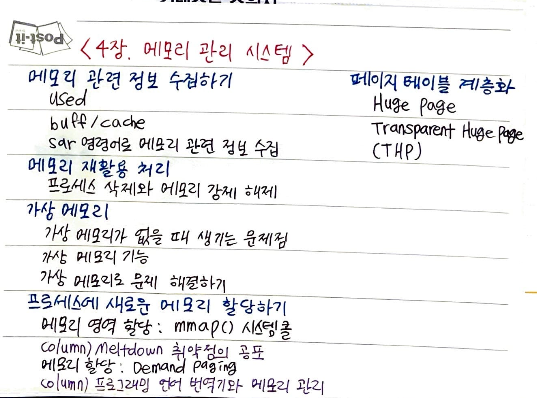 Post-it
<4장. 메모리 관리 시스템>
메모리 관련 정보 수집하기
used
buff/cache
sar 명령어로 메모리 관련 정보 수집
메모리 재활용 처리
프로세스 삭제와 메모리 강제 해제
가상 메모리
가상 메모리가 없을 때 생기는 문제점
가상 메모리 기능
가상 메모리로 문제 해결하기
프로세스에 새로운 메모리 할당하기
메모리 영역 할당: mmap() 시스템 콜
column) Meltdown 취약점의 공포
메모리 할당: Demand paging
column) 프로그래밍 언어 번역기와 메모리 관리
페이지 테이블 계층화
Huge page
Transparent Huge page
(THP)